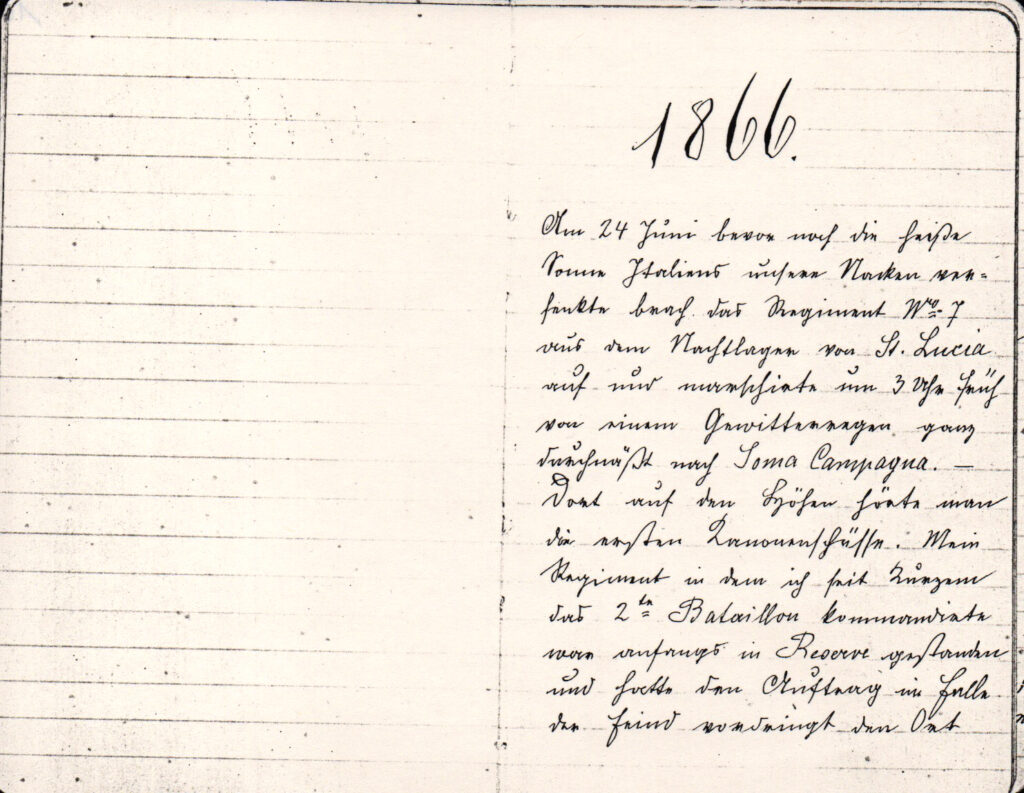 1866.
Am 24 Juni bevor noch die heiße
Sonne Italiens unsere Nacken ver-
senkte brach das Regiment Nro. 7
aus dem Nachtlager von St. Lucia
auf und marschirte um 3 Uhr früh
von einem Gewitterregen ganz
durchnäßt nach Soma Campagna. —
Dort auf den Höhen hörte man
die ersten Kanonenschüsse. Mein
Regiment in dem ich seit Kurzem
das 2te Bataillon kommandirte
war anfangs in Reserve gestanden
und hatte den Auftrag im Falle
der Feind vordringt den Ort